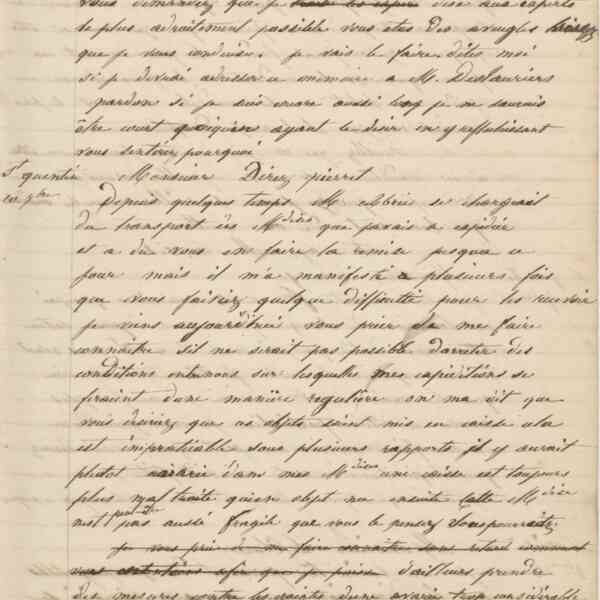 vous demandez que je toutes les dise aux experts
le plus adroitement possible vous etes des aveugles
que je vous conduise. je vais le faire dites moi
si je devrai adresser ce memoire a M. Deslauriers
pardon si je suis encore aussi long je ne saurais
être court quoiquen ayant le desir en y reflechissant
vous sentirez pourquoi
St quentin Monsieur Dérez pierret
Depuis quelques temps M se chargeait
du transport des Mdises que javais a expédier
et a du vous en faire la remise jusqua ce
jour mais il m'a manifesté a plusieurs fois
que vous faisiez quelque difficulté pour les recevoir
je viens aujourd'hui vous prier de me faire
connaitre sil ne serait pas possible darreter des
conditions entre nous sur lesquelles mes expéditions se
feraient dune manière regulière on ma dit que
vous desiriez que ces objets soient mis en caisse cela
est impraticable sous plusieurs rapports il y aurait
plutot avarie dans mes Mdises une caisse est toujours
plus mal traité quun objet nu ensuite Mdise
nest peut être pas aussi fragile que vous le pensez
je vous prie de me faire connaitre sans retard comment
vous afin que je puisse d'ailleurs prendre
des mesures contre les crainte dune avarie trop considérable